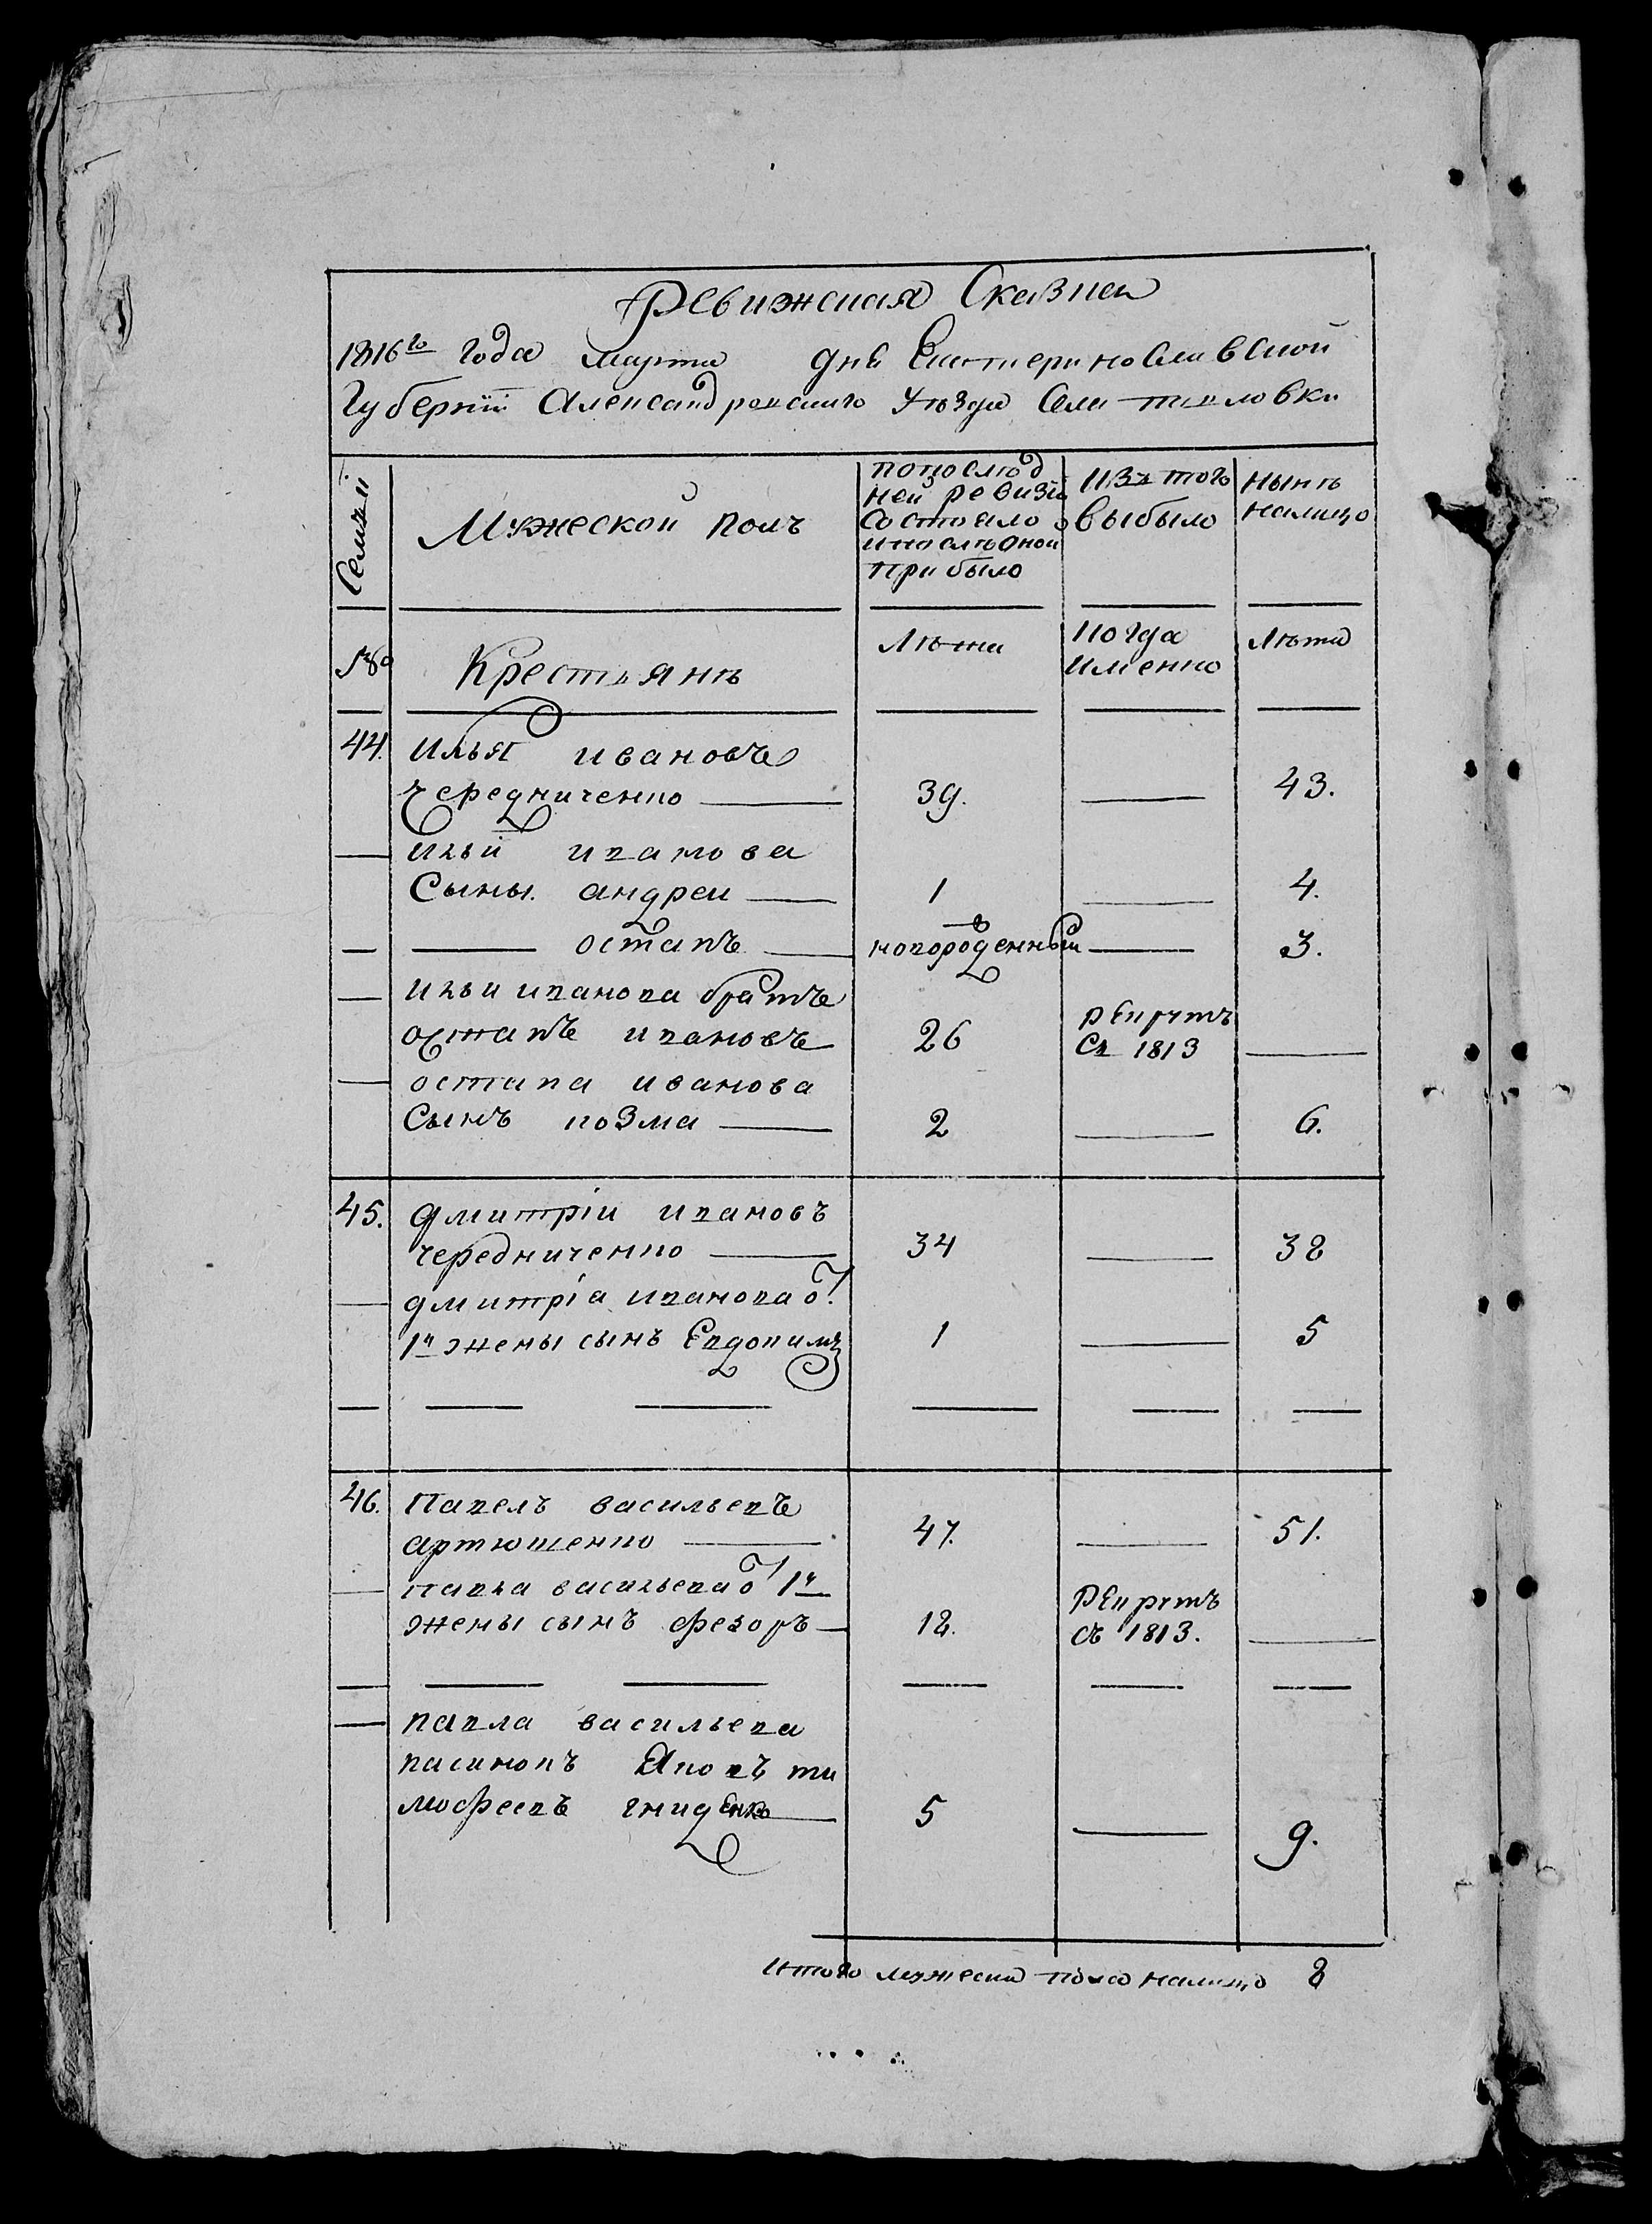 Ревижская Сказка
1816го года марта дня Екатеринославской
Губернїи Александровскаго уѣзда села
Семьи
Мужеской полъ
попослѣд
ней ревизїи
состояло
и послѣ оной
прибыло
изъ того
выбыло
нынѣ
налицо
№
Крестьянѣ
Лѣта
когда
именно
Лѣта
44. Илья ивановъ
чередниченко 39. 43.
ильи иванова
Сыны. андреи 1 4.
остапъ новорожденныи 3.
ильи иванова братъ
остапъ ивановъ 26 рекрутъ
съ 1813
остапа иванова
Сынъ козма 2 6.
45. дмитрїи ивановъ
чередниченко 34 38
дмитрїа иванова о́т
1й жены сынъ Евдокимъ 1 5
46. Павелъ васильевъ
артюшенко 47. 51.
павла васильева от 1й
жены сынъ федоръ 18. Рекрутъ
съ 1813.
павла васильева
пасинокъ Яковъ ти
мофеевъ гниденко 5 9.
Итого мужеска пола налицо 8